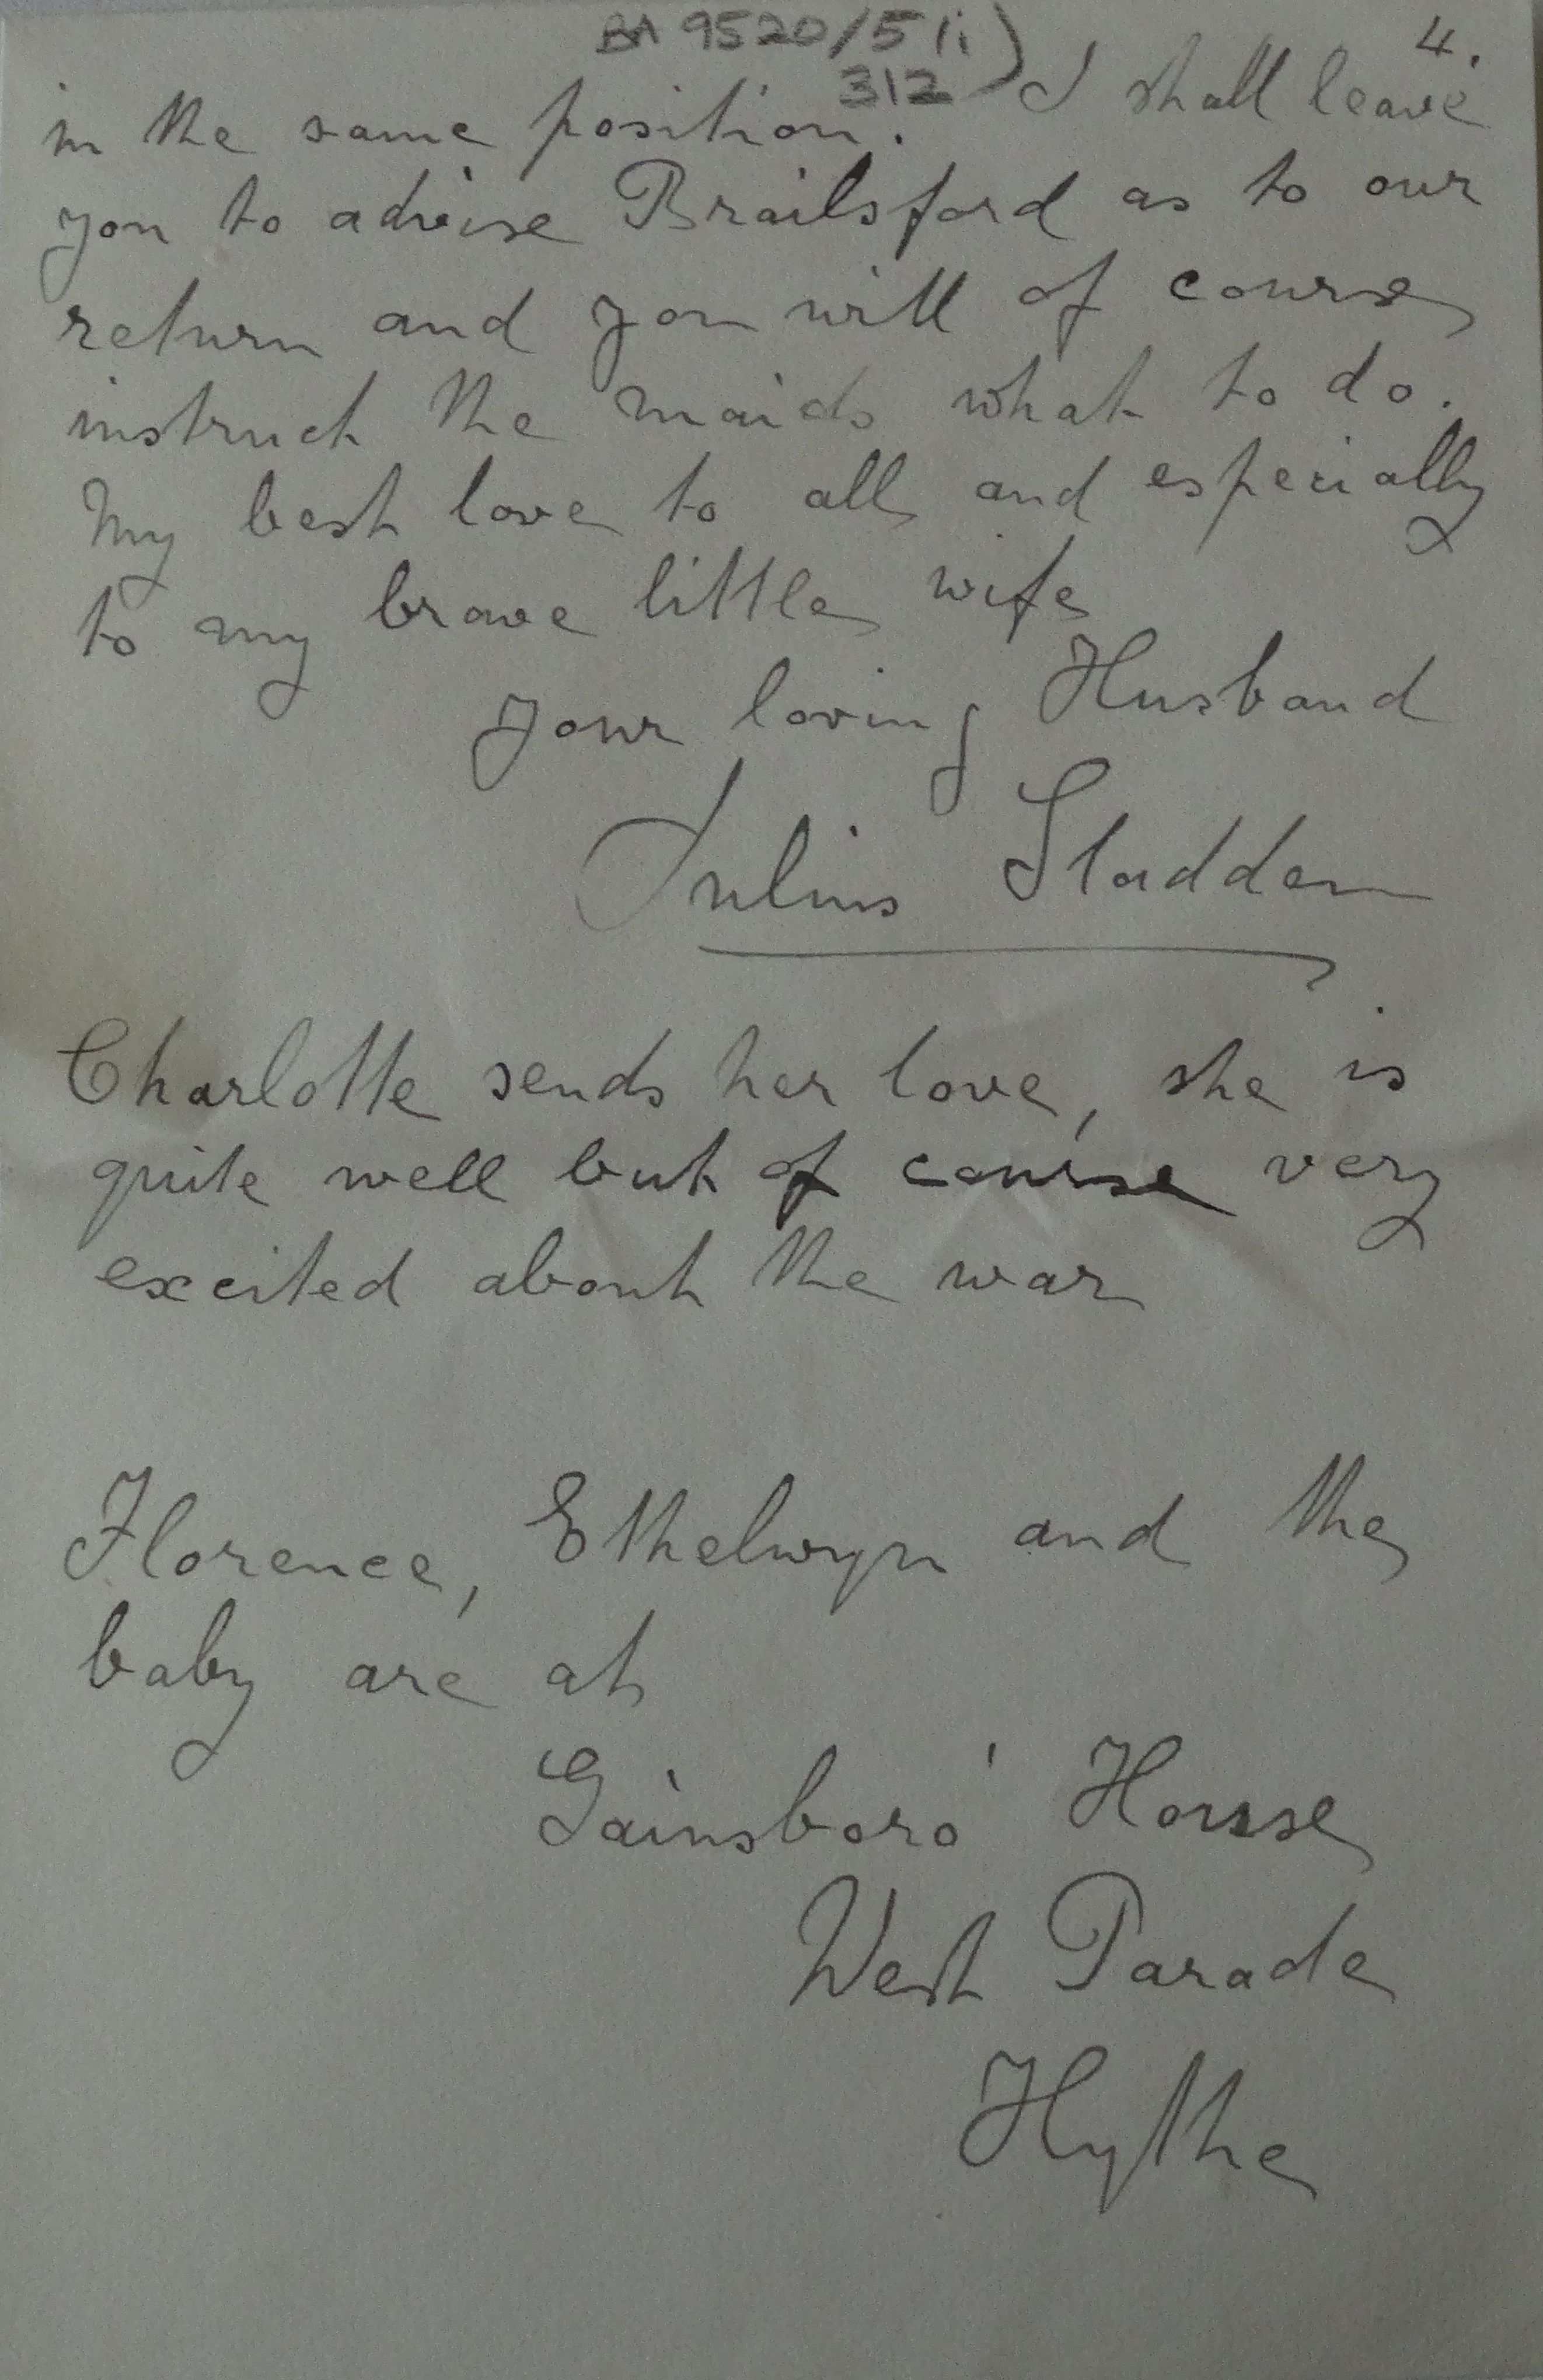 BA 9520/5 (i)
312
4.
in the same position. I shall leave
you to advise Brailsford as to our
return and you will of course
instruct the maids what to do.
My best love to all and especially
to my brave little wife
Your loving Husband
Julius Sladden
Charlotte sends her love, she is
quite well but of course very
excited about the war
Florence, Ethelwyn and the
baby are at
Gainsboro' House
West Parade
Hythe